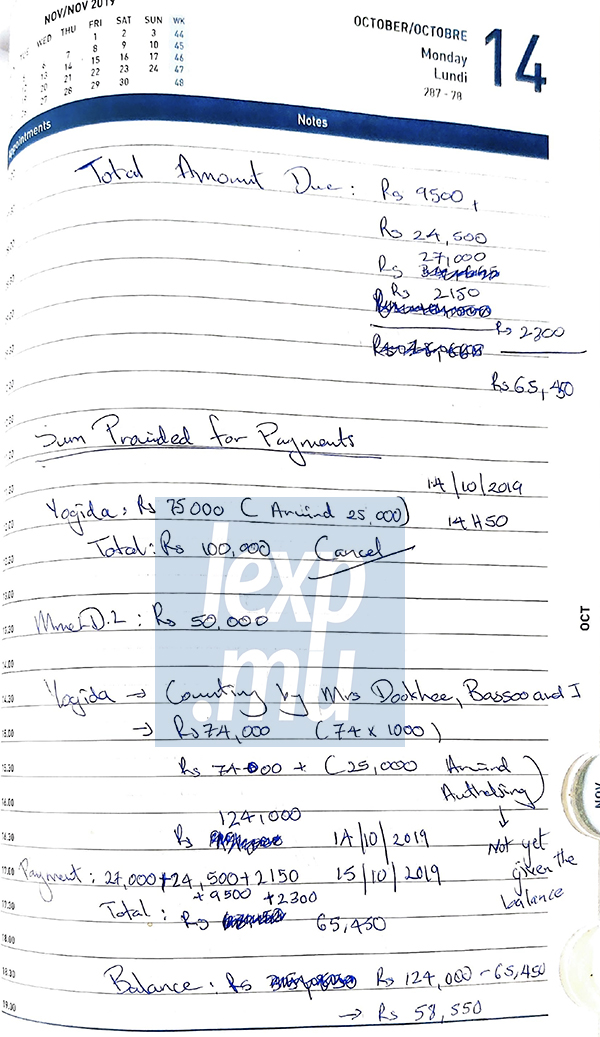 NOV/NOV 2019
TUE WED THU FRI SAT SUN WK
1 2 3 44
7 8 9 10 45
13 14 15 16 17 46
20 21 22 23 24 47
27 28 29 30 48
OCTOBER/OCTOBRE
Monday
Lundi
287 - 78
14
Appointments Notes
Total Amount Due : Rs 9500 +
Rs 24,500
27,000
Rs
Rs 2150
Rs 2300
Rs 65,450
Sum Provided for Payments
14/10/2019
Yogida : Rs 75000 ( Arvind 25,000)
14H50
Total : Rs 100,000 Cancel
Mme D.L : Rs 50.000
Yogida → Counting by Mrs Dookhee, Bassoo and I
→ Rs 74,000 (74 x 1000)
Rs 74000 + (25,000 Arvind
Authelsing)
↓
Not yet
given the
balance
124,000
Rs 14/10/2019
Payment : 27,000+24,500+2150 15/10/2019
+9500 +2300
Total : Rs 65,450
Balance : Rs Rs 124,000 - 65,450
→ Rs 58,550
OCT
NOV
lexp
.mu